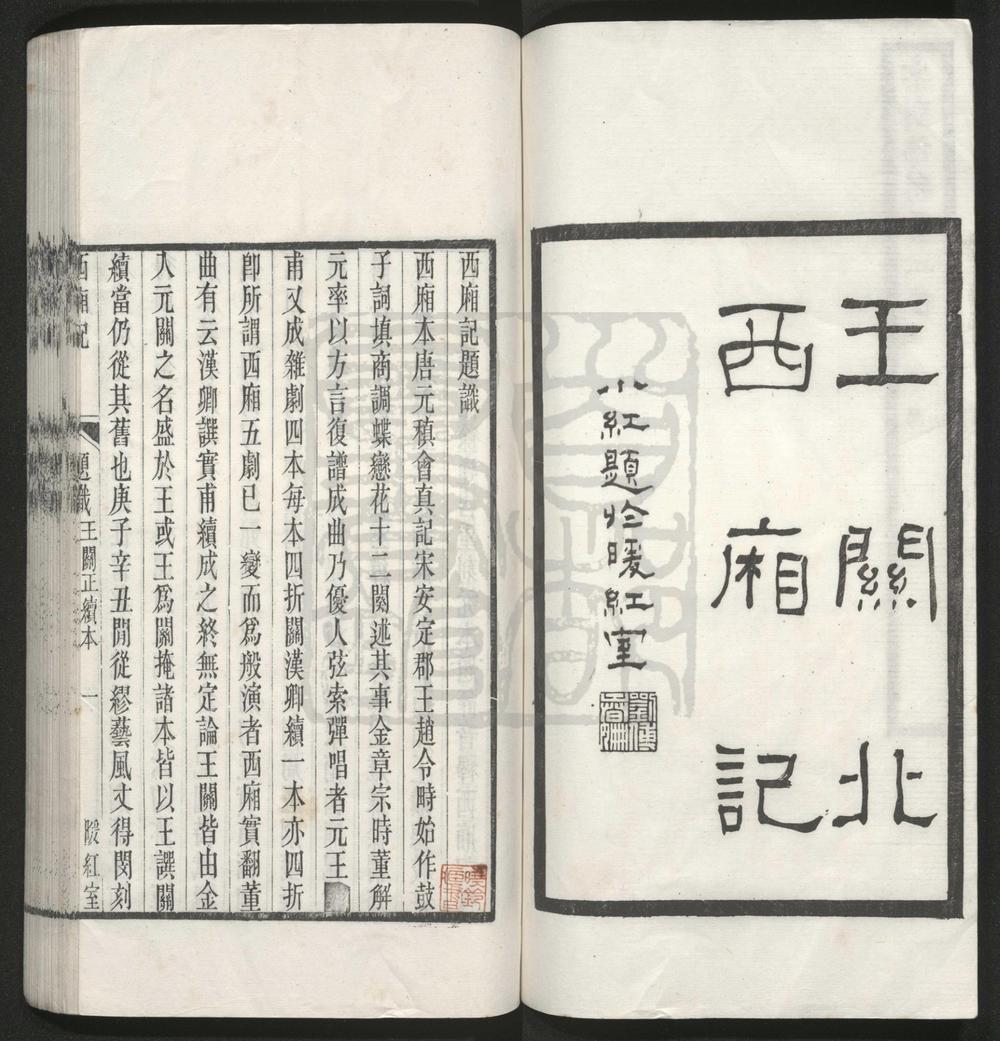 王關北
西廂記
小紅題於暖紅室
西廂記題識
西廂本唐元稹會真記宋安定郡王趙令畤始作鼓
子詞填商調蝶戀花十二闋述其事金章宗時董解
元率以方言復譜成曲乃優人弦索彈唱者元王
甫又成雜劇四本每本四折關漢卿續一本亦四折
卽所謂西廂五劇已一變而爲般演者西廂實翻董
曲有云漢卿譔實甫續成之終無定論王關皆由金
入元關之名盛於王或王爲關掩諸本皆以王譔關
續當仍從其舊也庚子辛丑閒從繆藝風丈得閔刻
西廂記 題識 王關正續本 一 暖紅室